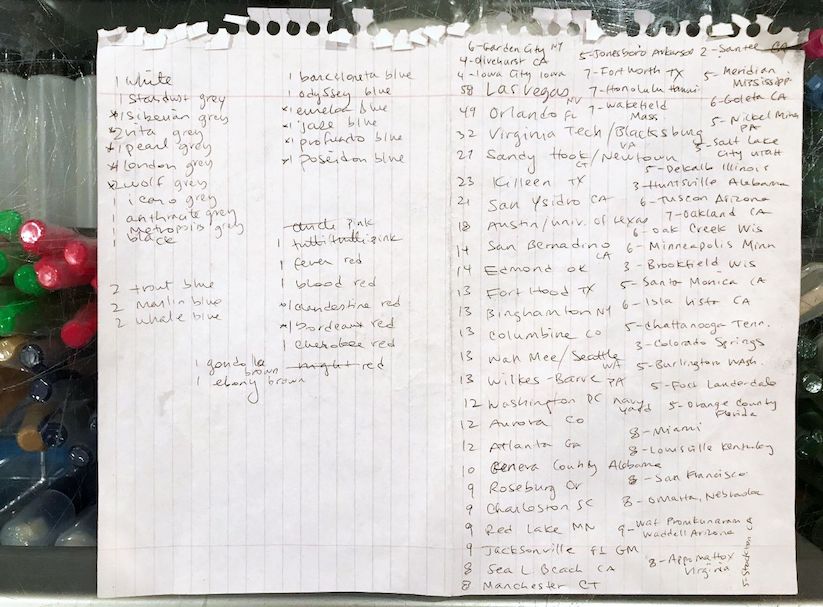 1 white
1 stardust grey
*1 siberian grey
*2 nta grey
*1 pearl grey
*1 london grey
*2 wolf grey
1 icaro grey
1 anthracite grey
1 metropolis grey
1 black
2 trout blue
2 marlin blue
2 whale blue
1 barceloneta blue
1 odyssey blue
*1 blue
*1 blue
*1 profundo blue
*1 poseidon blue
pink
1 tuttifrutti pink
1 fever red
1 blood red
*1 clandestine red
*1 bordeaux red
1 cherokee red
might red
1 gondolla brown
1 ebony brown
6- Garden City NY
4- Olivehurst CA
4- Iowa City Iowa
58 Las Vegas NV
49 Orlando FL
32 Virginia Tech/Blacksburg VA
27 Sandy Hook/Newtown CT
23 Killeen TX
21 San Ysidro CA
18 Austin/univ. of texas
14 San Bernadino CA
14 Edmond OK
13 Fort Hood TX
13 Binghamton NY
13 Columbine CO
13 Wah Mee/Seattle WA
13 Wilkes-Barre PA
12 Washington DC navy yard
12 Aurora CO
12 Atlanta GA
10 Geneva County Alabama
9 Roseburg Or
9 Charleston SC
9 Red Lake MN
9 Jacksonville Fl GM
8 Seal Beach CA
8 Manchester CT
5- Jonesboro Arkansas
7- Fort Worth TX
7- Honolulu Hawaii
7- Wakefield Mass.
2- Santee CA
5- Meridian Mississippi
6- Goleta CA
5- Nickel Mines PA
5- Salt Lake City Utah
5- Dekalb Illinois
3- Huntsville Alabama
6- Tuscon Arizona
7- Oakland CA
6- Oak Creek Wis
6- Minneapolis Minn
3- Brookfield Wis
5- Santa Monica CA
6- Isla Vista CA
5- Chattanooga Tenn.
3- Colorado Springs
5- Burlington Wash.
5- Fort Lauderdale
5- Orange County Florida
8- Miami
8- Louisville Kentucky
8- San Francisco
8- Omaha, Nebraska
9- Wat Promkunaram Waddell Arizona
8- Appomattox Virginia
5- Stockton CA